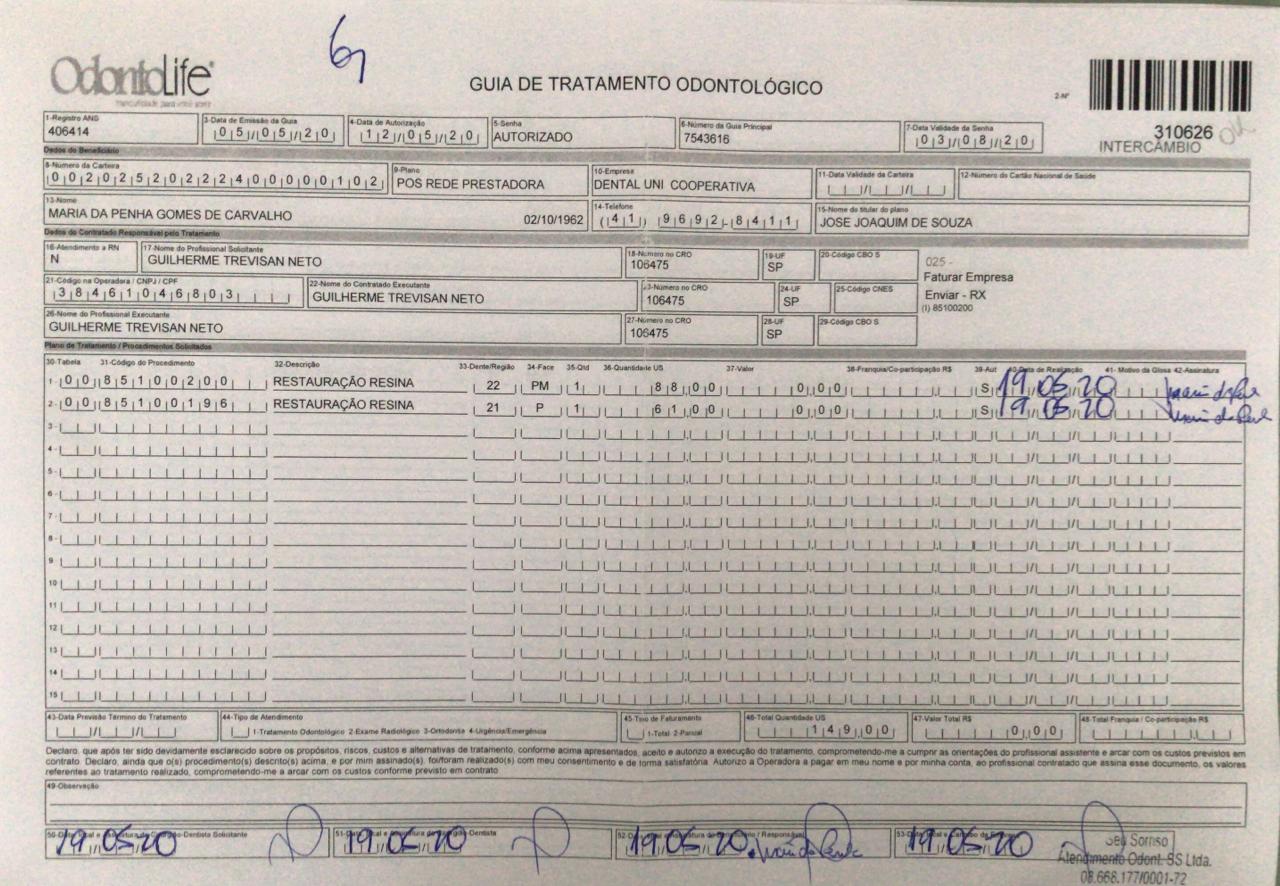 OdontoLife
GUIA DE TRATAMENTO ODONTOLÓGICO
2-Nº
310626
INTERCÂMBIO
OK
1-Registro ANS
406414
3-Data de Emissão da Guia
05/05/20
4-Data de Autorização
12/05/20
5-Senha
AUTORIZADO
6-Número da Guia Principal
7543616
7-Data Validade da Senha
03/08/20
Dados do Beneficiário
8-Número da Carteira
00202520222400000102
9-Plano
POS REDE PRESTADORA
10-Empresa
DENTAL UNI COOPERATIVA
11-Data Validade da Carteira
12-Número do Cartão Nacional de Saúde
13-Nome
MARIA DA PENHA GOMES DE CARVALHO 02/10/1962
14-Telefone
(41) 9692-8411
15-Nome do titular do plano
JOSE JOAQUIM DE SOUZA
Dados do Contratado Responsável pelo Tratamento
16-Atendimento a RN
N
17-Nome do Profissional Solicitante
GUILHERME TREVISAN NETO
18-Número no CRO
106475
19-UF
SP
20-Código CBO S
025 -
Faturar Empresa
Enviar - RX
(I) 85100200
21-Código na Operadora / CNPJ / CPF
38461046803
22-Nome do Contratado Executante
GUILHERME TREVISAN NETO
23-Número no CRO
106475
24-UF
SP
25-Código CNES
26-Nome do Profissional Executante
GUILHERME TREVISAN NETO
27-Número no CRO
106475
28-UF
SP
29-Código CBO S
Plano de Tratamento / Procedimentos Solicitados
30-Tabela 31-Código do Procedimento 32-Descrição 33-Dente/Região 34-Face 35-Qtd 36-Quantidade US 37-Valor 38-Franquia/Co-participação R$ 39-Aut 40-Data de Realização 41- Motivo da Glosa 42-Assinatura
1- 00 85100200 RESTAURAÇÃO RESINA 22 PM 1 88,00 0,00 S 19.05.20
2- 00 85100196 RESTAURAÇÃO RESINA 21 P 1 61,00 0,00 S 19.05.20
3-
4-
5-
6-
7-
8-
9
10
11
12
13
14
15
43-Data Previsão Término do Tratamento
44-Tipo de Atendimento
1-Tratamento Odontológico 2-Exame Radiológico 3-Ortodontia 4-Urgência/Emergência
45-Tipo de Faturamento
1-Total 2-Parcial
46-Total Quantidade US
149,00
47-Valor Total R$
0,00
48-Total Franquia / Co-participação R$
Declaro, que após ter sido devidamente esclarecido sobre os propósitos, riscos, custos e alternativas de tratamento, conforme acima apresentados, aceito e autorizo a execução do tratamento, comprometendo-me a cumprir as orientações do profissional assistente e arcar com os custos previstos em
contrato. Declaro, ainda que o(s) procedimento(s) descrito(s) acima, e por mim assinado(s), foi/foram realizado(s) com meu consentimento e de forma satisfatória. Autorizo a Operadora a pagar em meu nome e por minha conta, ao profissional contratado que assina esse documento, os valores
referentes ao tratamento realizado, comprometendo-me a arcar com os custos conforme previsto em contrato
49-Observação
19.05.20
19.05.20
19.05.20
19.05.20
Seu Sorriso
Atendimento Odont. SS Ltda.
08.668.177/0001-72